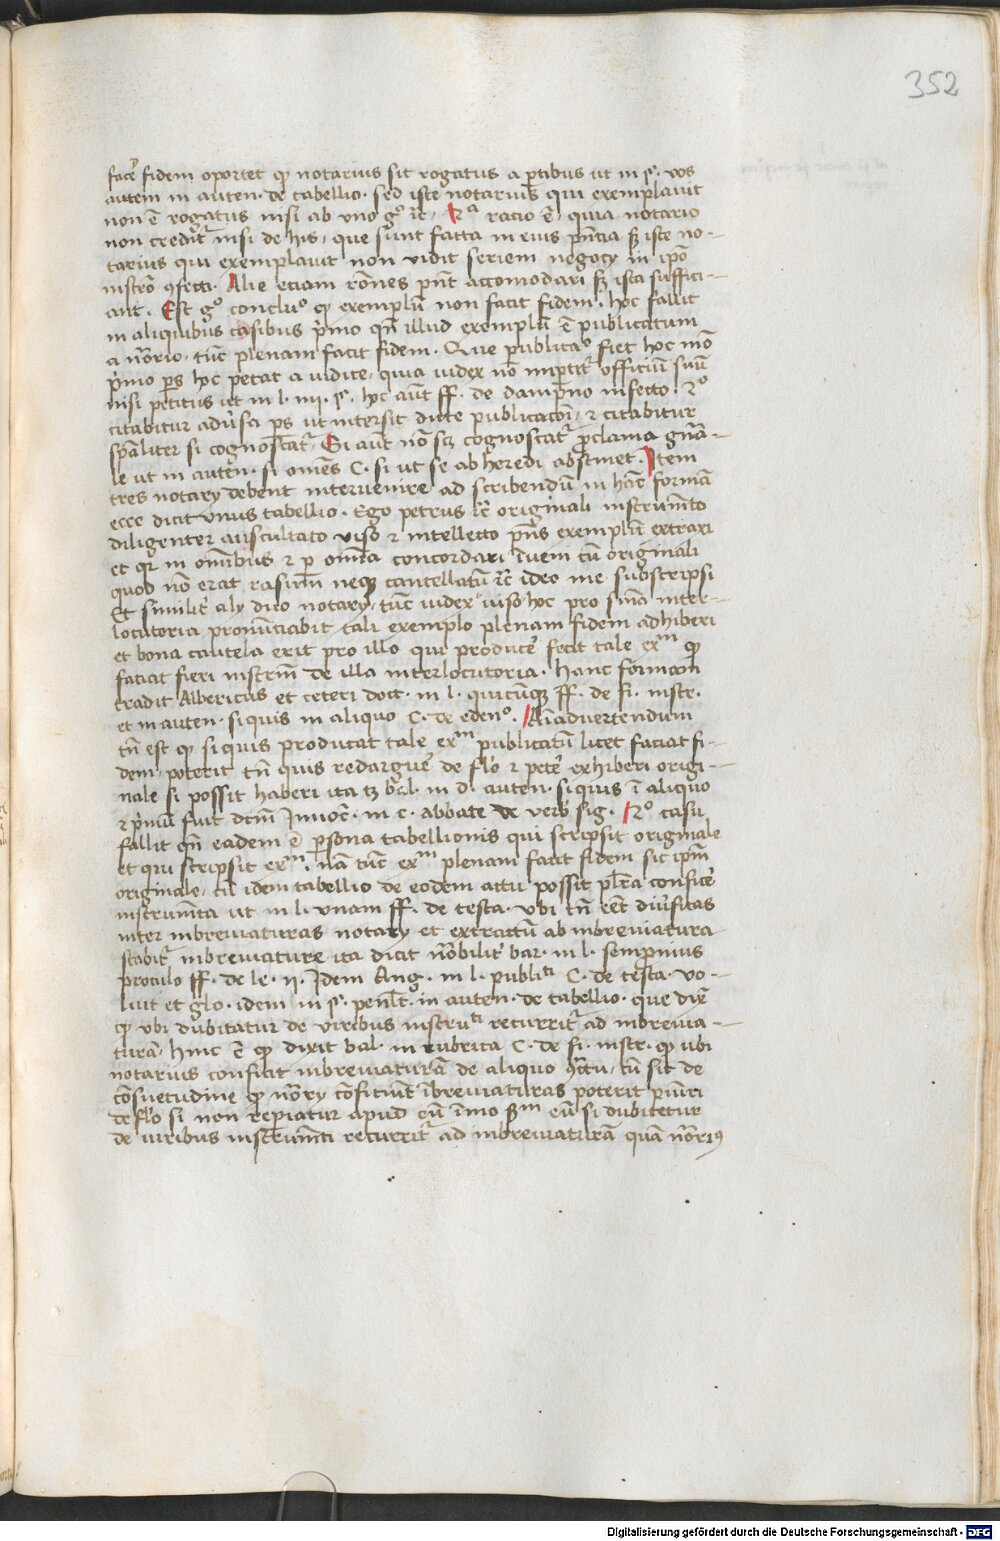 352
facẽ fidem oportet qꝫ notarius sit rogatus a ꝑtibus ut in §. vos
autem in auten. de tabellio. sed iste notarius qui exemplauit
non ẽ rogatus nisi ab vno gͦ ꝛc̃. 2ᵃ racio ẽ, quia notario
non creditͬ nisi de his, que sunt facta in eius pñtia sꝫ iste no-
tarius qui exemplauit non vidit seriem negocy in ipͦo
instrõ ꝯfecti. Alie etiam rõnes pñt accomodari sꝫ ista suffici-
ant. Est gͦ concluͦ qꝫ exemplũ non facit fidem. hoc fallit
in aliquibus casibus p̃mo qñ illud exemplũ ẽ publicatum
a nõrio, tũc plenam facit fidem. Que publicaͦ fiet hoc mõ
p̃mo ps hoc petat a iudice, quia iudex nõ imꝑtitͬ officiũ suũ
nisi petitus ut in l. iiij. §. hoc aũt ff. de dampno infecto. 2ͦ
citabitur adũsa ps ut intersit dicte publicacõi, ⁊ citabitur
spãliter si cognoscatͬ. Si aũt nõ scꝫ cognoscatͬ ꝓclama gñã-
le ut in auten. si omẽs C. si ut se ab heredi abstinet. Item
tres notary debent interuenire ad scribendũ in hãc formã
ecce dicit vnus tabellio. Ego petrus ꝛc̃ originali instrumẽto
diligenter auscultato viso ⁊ intellecto pñs exemplũ extraxi
et qꝛ in omĩbus ⁊ ꝑ omĩa concordari ĩueni cũ originali
quod nõ erat rasum neqꝫ cancellatũ ꝛc̃ ideo me subscripsi
Et similit̃ aly duo notary, tũc iudex viso hoc pro sniã inter-
locutoria pronũciabit tali exemplo plenam fidem adhiberi
et bona cautela erit pro illo qui producẽ fecit tale exᵐ qꝫ
faciat fieri instrm̃ de illa interlocutoria. Hanc formam
tradit Albericus et ceteri doct. in l. quicũqꝫ ff. de fi. instr.
et in auten. si quis in aliquo C. de edenͦ. Aĩaduertendum
tñ est qꝫ si quis producat tale exᵐ publicatũ licet faciat fi-
dem, poterit tñ quis redarguẽ de flͦo ⁊ petẽ exhiberi origi-
nale si possit haberi ita tꝫ bal. in d. auten. si quis ĩ aliquo
⁊ p̃mũ fuit dcm̃ Innoc̃. in c. abbate de verb̃ sig. 2ͦ casu
fallit qñ eadem ẽ ꝑsona tabellionis qui scripsit originale
et qui scripsit exᵐ, nã tũc exᵐ plenam facit fidem sic ipm̃
originale, cũ idem tabellio de eodem actu possit pl̃ra conficẽ
instrumẽta ut in l. vnam ff. de testa. vbi tñ eẽt diũsitas
inter inbreuiaturas notary et extractũ ab inbreuiatura
stabitͬ inbreuiature ita dicit nõbilit̃ bar. in l. sempnius
proculo ff. de le. ij. Idem Ang. in l. publicᵗⁱ C. de testa. vo-
luit et glo. idem in §. penl̃t. in auten. de tabellio. que diẽ
qꝫ vbi dubitatur de viribus instruᵗⁱ recurritͬ ad inbreuia-
turã. Hinc ẽ qꝫ dixit bal. in rubrica C. de fi. instr. qꝫ ubi
notarius conficit inbreuiaturã de aliquo ꝯctũ, cũ sit de
cõsuetudine qꝫ nõry cõficiũt ĩbreuiaturas poterit puniri
de flͦo si non repiatur apud eũ ĩmo sꝫᵐ eũ si dubitetur
de viribus instrumẽti recurritͬ ad inbreuiaturã quã nõriꝯ
Digitalisierung gefördert durch die Deutsche Forschungsgemeinschaft - DFG